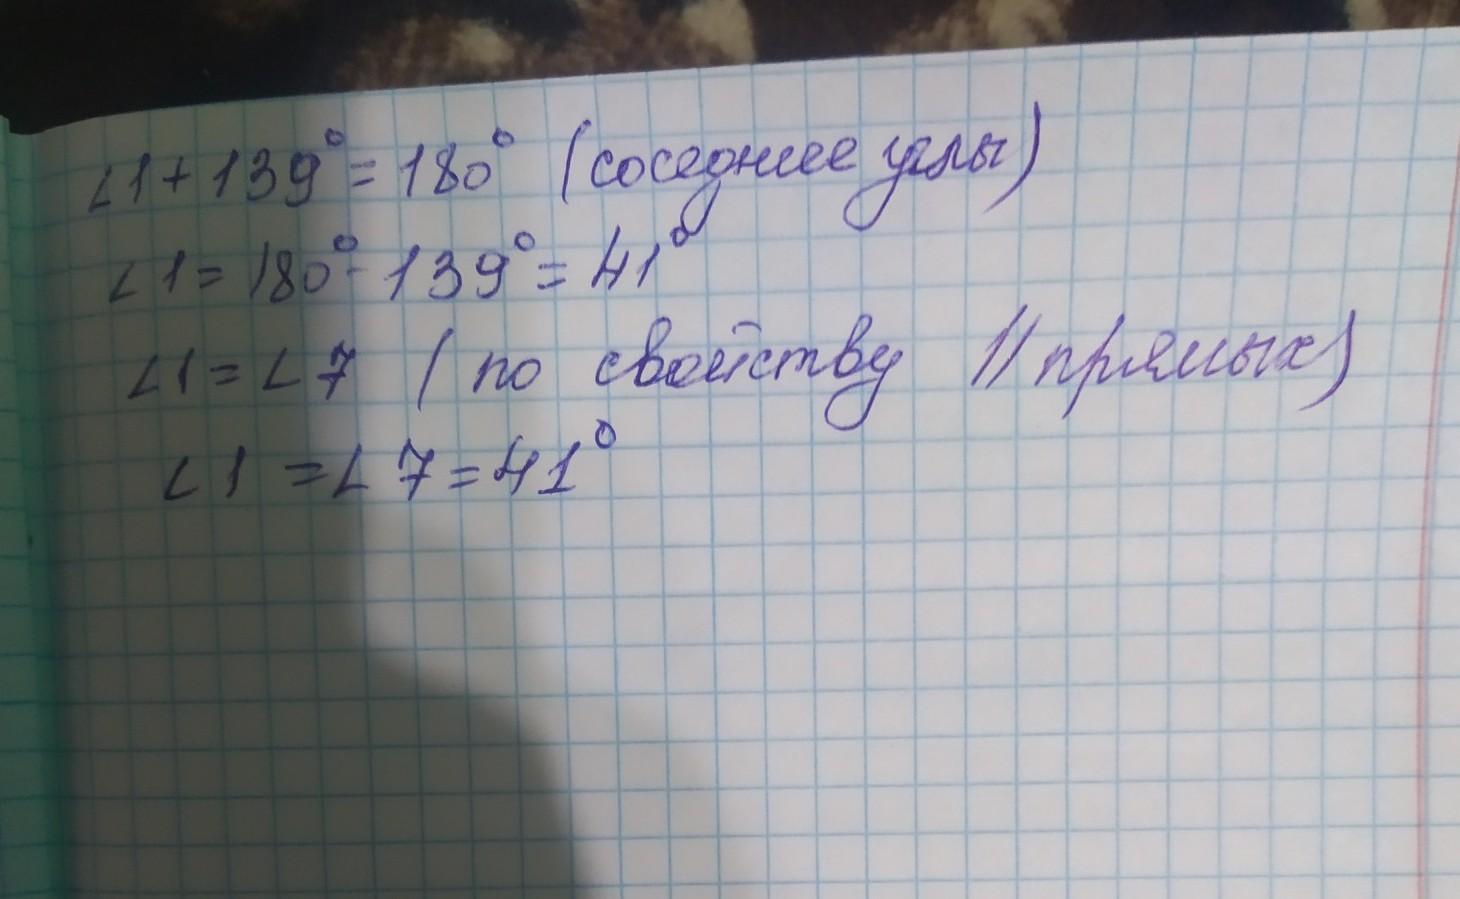 ∠1 + 139° = 180° (соседнее углы)
∠1 = 180° - 139° = 41°
∠1 = ∠7 (по свойству // прямых)
∠1 = ∠7 = 41°